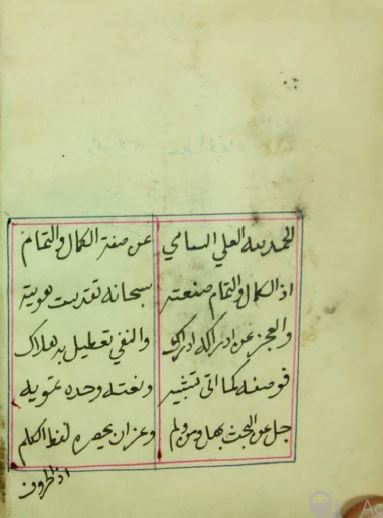 الحمد لله العلي السامي عن صفة الكمال والتمام
اذ الكمال والتمام صنعته سبحانه تقدست هويته
والعجز عن ادراكه ادراك والنفي تعطيل به هلاك
فوصفه كما اتى تشبيه ونعته وحده تمويه
جل عن البحث بهل ومن ولم وعز ان يحصره لفظ الكلم
اذ الحروف